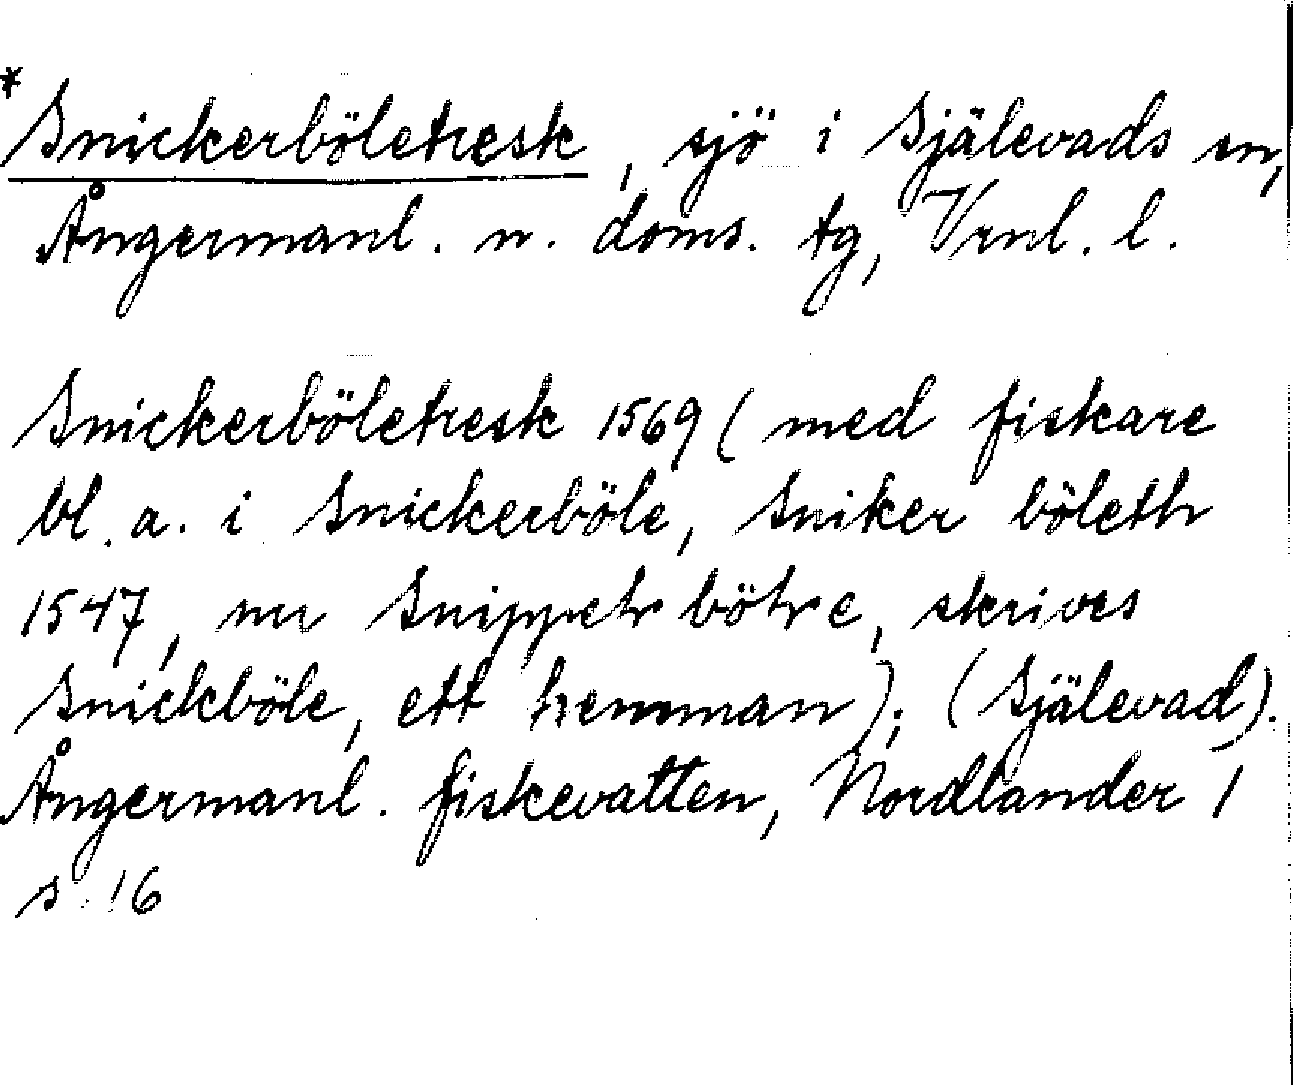 *Snickerböletresk, sjö i Själevads sn,
Ångermanl. n. doms. tg, Vrnl. l.
Snickerböletresk 1569 (med fiskare
bl. a. i Snickerböle, Sniker böleth
1547, nu böhre, skrives
Snickböle, ett hemman); (Själevad).
Ångermanl. fiskevatten, Nordlander 1
s. 16